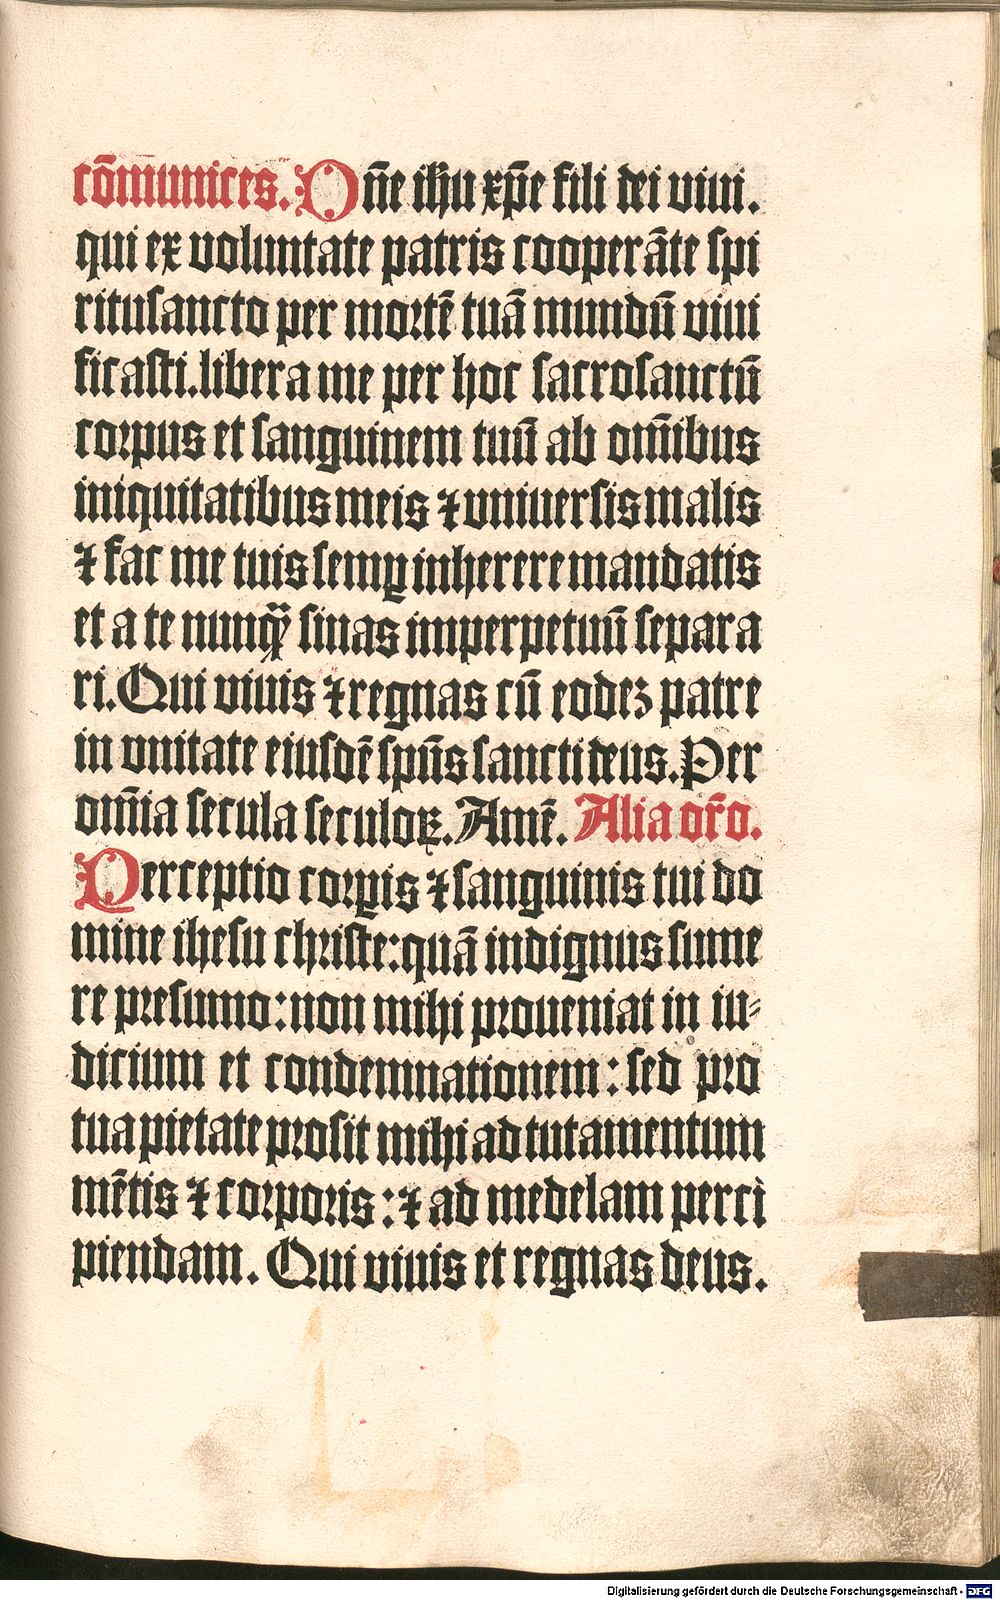 cōmunices. Dn̄e ih̄u xp̄e fili dei viui.
qui ex voluntate patris cooperāte spi
ritusancto per mortē tuā mundū viui
ficasti. libera me per hoc sacrosanctū
corpus et sanguinem tuū ab om̄ibus
iniquitatibus meis ⁊ vniuersis malis
⁊ fac me tuis semꝑ inherere mandatis
et a te nunqȝ̄ sinas imperpetuū separa
ri. Qui viuis ⁊ regnas cū eodeȝ patre
in vnitate eiusdē spūs sancti deus. Per
om̄ia secula seculoꝝ. Amē. Alia or̄o.
Perceptio corꝑis ⁊ sanguinis tui do
mine ihesu christe: quā indignus sume
re presumo: non mihi proueniat in iu⸗
dicium et condemnationem: sed pro
tua pietate prosit mihi ad tutamentum
mētis ⁊ corporis: ⁊ ad medelam perci
piendam. Qui viuis et regnas deus.
Digitalisierung gefördert durch die Deutsche Forschungsgemeinschaft - DFG